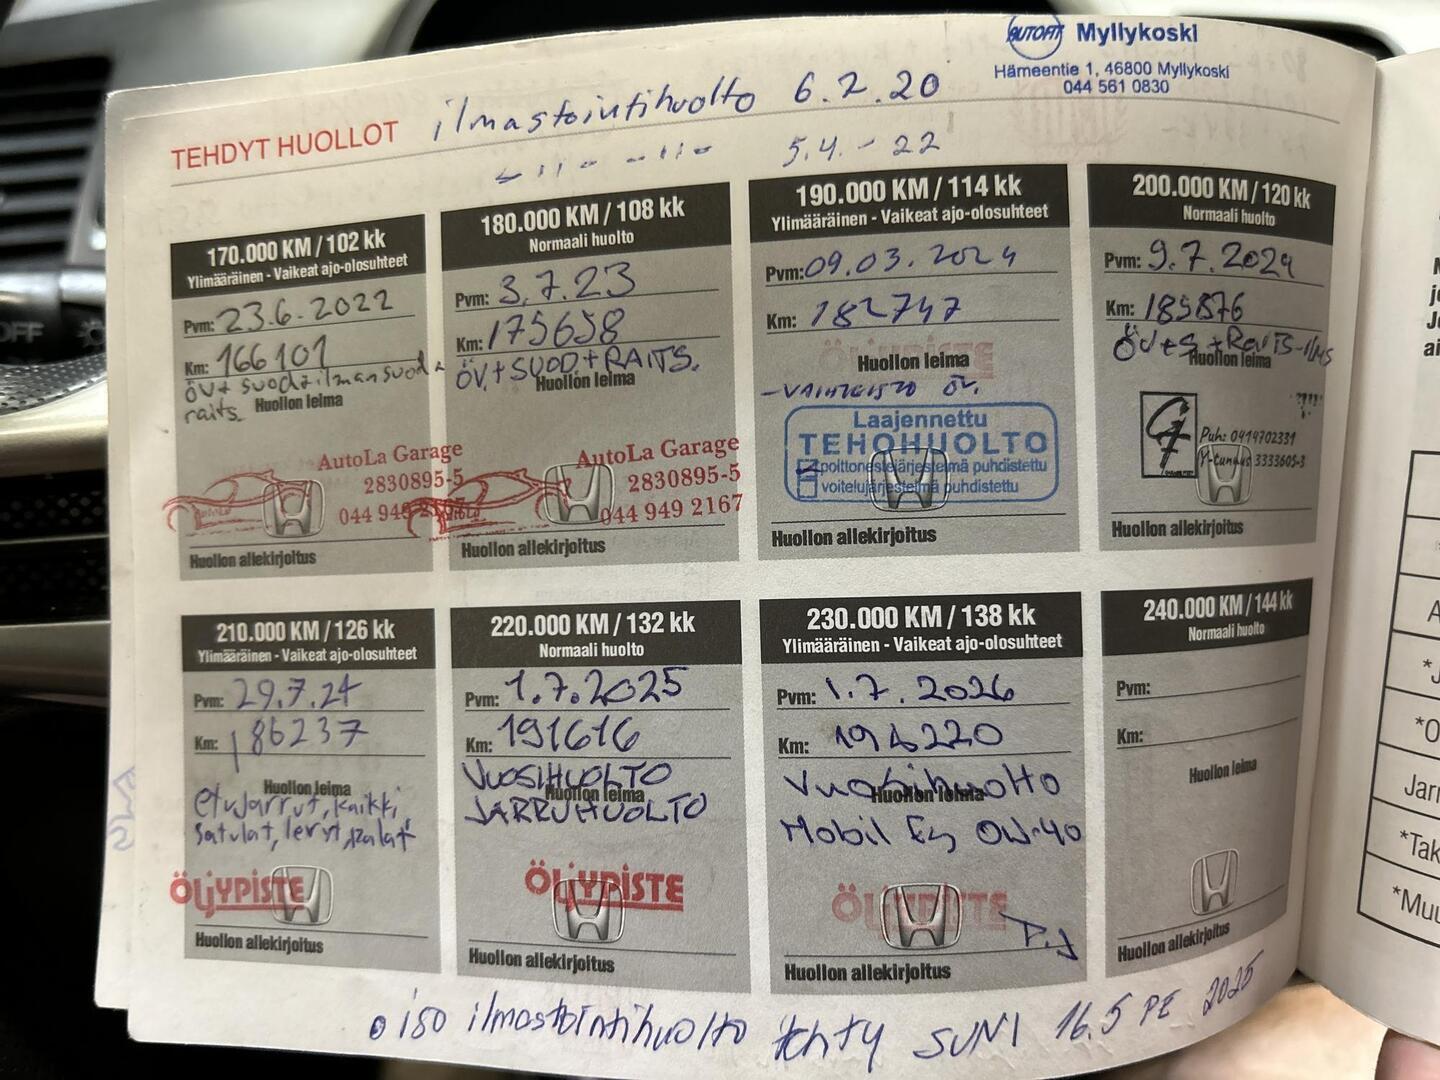 AUTOFIT Myllykoski
Hämeentie 1, 46800 Myllykoski
044 561 0830
TEHDYT HUOLLOT ilmastointihuolto 6.2.20
- 11 - - 11 - 5.4. - 22
170.000 KM / 102 kk
Ylimääräinen - Vaikeat ajo-olosuhteet
Pvm: 23.6.2022
Km: 166101
öv+ suod+ilmansuod+
raits.
Huollon leima
AutoLa Garage
2830895-5
044 949
Huollon allekirjoitus
180.000 KM / 108 kk
Normaali huolto
Pvm: 3.7.23
Km: 175658
ÖV.+SUOD.+RAITS.
Huollon leima
AutoLa Garage
2830895-5
044 949 2167
Huollon allekirjoitus
190.000 KM / 114 kk
Ylimääräinen - Vaikeat ajo-olosuhteet
Pvm: 09.03.2024
Km: 182747
ÖLJYPISTE
Huollon leima
-VAIHTEISTO ÖV.
Laajennettu
TEHOHUOLTO
polttonestejärjestelmä puhdistettu
voitelujärjestelmä puhdistettu
Huollon allekirjoitus
200.000 KM / 120 kk
Normaali huolto
Pvm: 9.7.2024
Km: 185876
ÖV+S +RAITS-ILMS
Huollon leima
Puh: 0414702331
Y-tunnus 3333605-3
Huollon allekirjoitus
210.000 KM / 126 kk
Ylimääräinen - Vaikeat ajo-olosuhteet
Pvm: 29.7.24
Km: 186237
Huollon leima
etujarrut, kaikki
satulat, levyt, palat
ÖLJYPISTE
Huollon allekirjoitus
220.000 KM / 132 kk
Normaali huolto
Pvm: 1.7.2025
Km: 191616
VUOSIHUOLTO
Huollon leima
JARRUHUOLTO
ÖLJYPISTE
Huollon allekirjoitus
230.000 KM / 138 kk
Ylimääräinen - Vaikeat ajo-olosuhteet
Pvm: 1.7.2026
Km: 196220
Vuosihuolto
Huollon leima
Mobil Esp 0W-40
ÖLJYPISTE
P.J
Huollon allekirjoitus
240.000 KM / 144 kk
Normaali huolto
Pvm:
Km:
Huollon leima
Huollon allekirjoitus
iso ilmastointihuolto tehty SUNI 16.5 PE 2025
OFF
Jarr
*Tak
*Muu